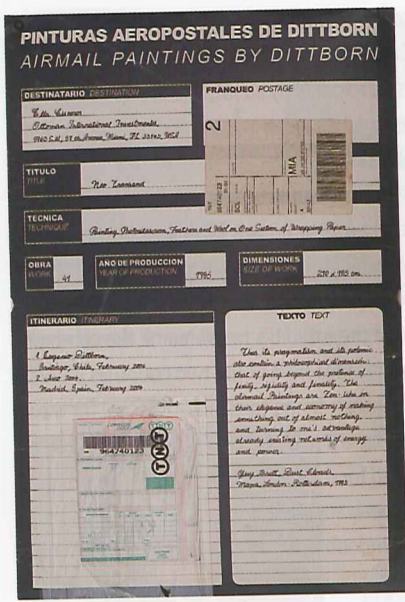 PINTURAS AEROPOSTALES DE DITTBORN
AIRMAIL PAINTINGS BY DITTBORN
DESTINATARIO DESTINATION
Ottoman International Investments,
Miami, FL
FRANQUEO POSTAGE
2
MIA
SCL
TITULO
TITLE
Neo Transand
TECNICA
TECHNIQUE
Painting, Photosilkscreen, Feathers and Wool on One Section of Wrapping Paper
OBRA
WORK
41
AÑO DE PRODUCCION
YEAR OF PRODUCTION
1985
DIMENSIONES
SIZE OF WORK
210 x 165 cm.
ITINERARIO ITINERARY
1. Eugenio Dittborn,
Santiago, Chile, February 2004
2. Arco 2004,
Madrid, Spain, February 2004
TNT
964740123
TNT
TEXTO TEXT
Thus its pragmatism and its polemic
also contain a philosophical dimension:
that of going beyond the pretence of
fixity, rigidity and finality. The
Airmail Paintings are Zen-like in
their elegance and economy of making
something out of almost nothing,
and turning to one's advantage
already existing networks of energy
and power.
Guy Brett, Dust Clouds,
Mapa, London-Rotterdam, 1993